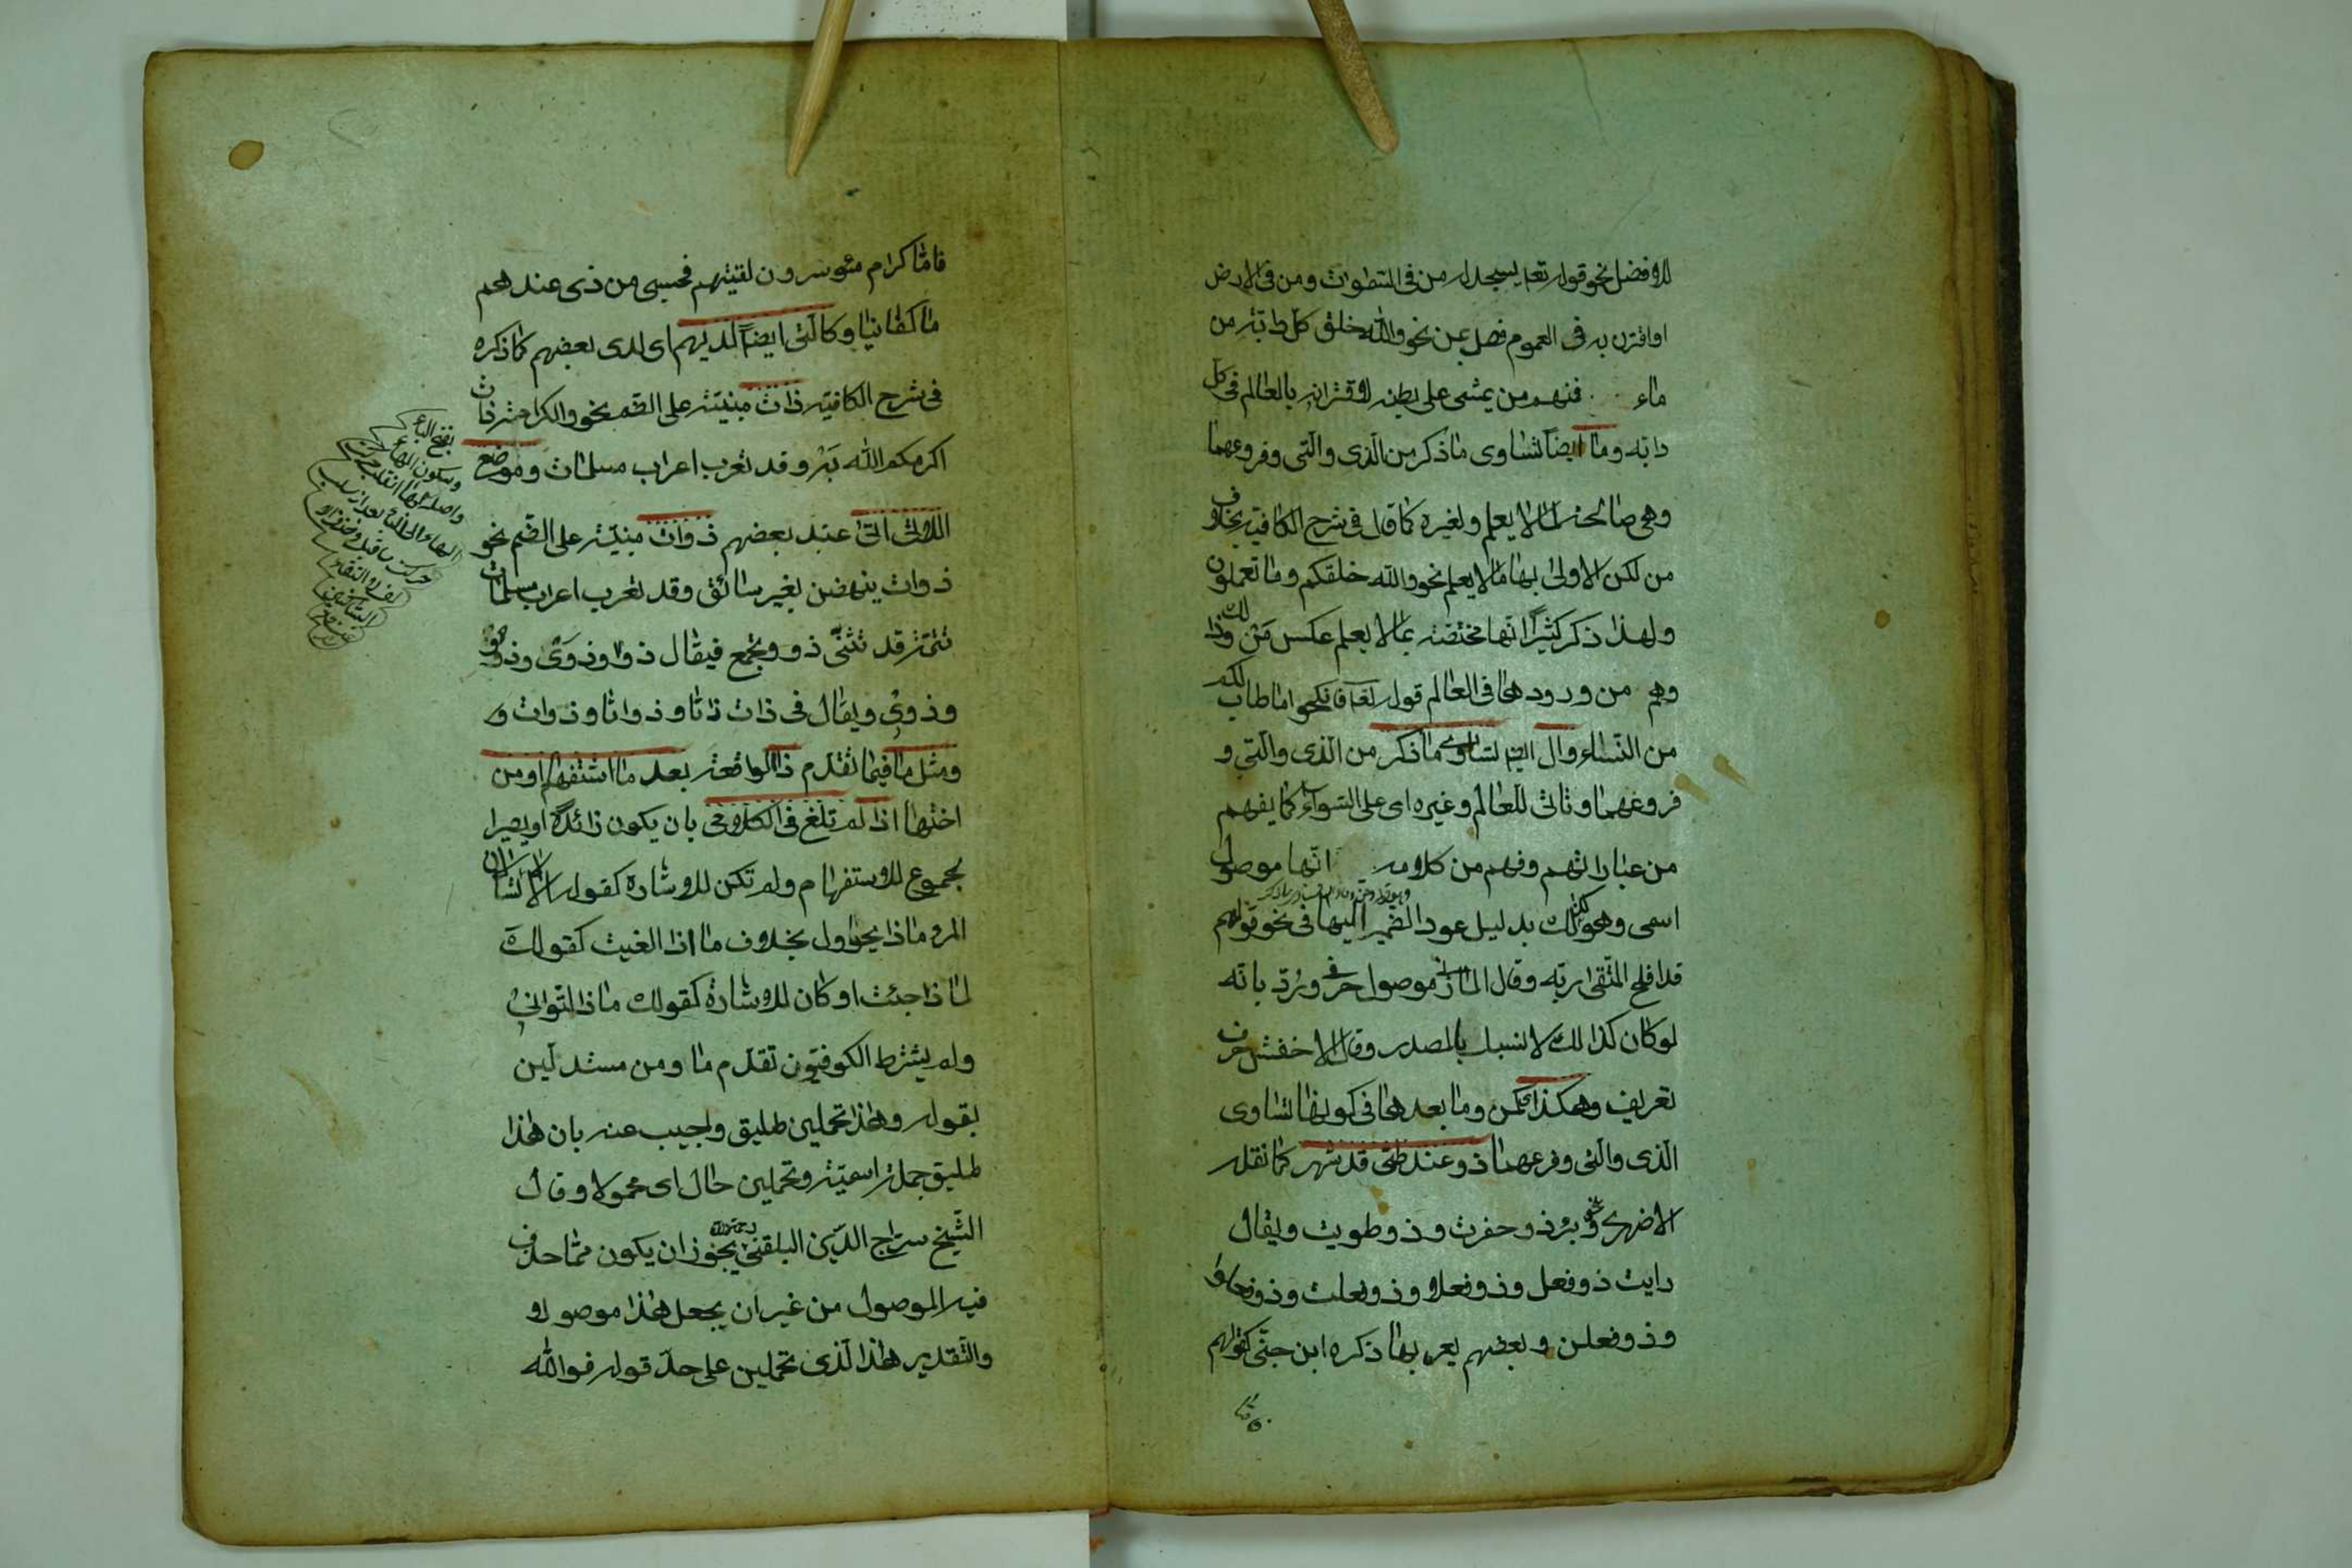 للافضل نحو قوله تعا يسجد له من فى السموات ومن فى الارض
او اقترن به فى العموم فصل عن نحو والله خلق كل دابة من
ماء فمنهم من يمشى على بطنه لاقترانه بالعالم فى كل
دابة وما ايضا تساوى ما ذكر من الذى والتى وفروعهما
وهى صالحة لما لا يعلم ولغيره كما قال فى شرح الكافية بخلاف
من لكن الاولى بها ما لا يعلم نحو والله خلقكم وما تعملون
ولهذا ذكر كثيرا انها مختصة بما لا يعلم عكس من وذلك
وهم من ورودها فى العالم قوله تعا فانكحوا ما طاب لكم
من النساء وال ايضا تساوى ما ذكر من الذى والتى و
فروعهما وتاتى للعالم وغيره اى على السواء كما يفهم
من عباراتهم وفهم من كلامه انها موصول
اسمى وهو كذلك بدليل عود الضمير اليها فى نحو قولهم
قد افلح المتقى ربه وقال المازنى موصول حرفى ورد بانه
لو كان كذلك لانسبك بالمصدر وقال الاخفش حرف
تعريف وهكذا كمن وما بعدها فى كونها تساوى
الذى والتى وفرعهما ذو عند طى قد شهر كما نقله
الازهرى نحو وبئر ذو حفرت وذو طويت ويقال
رايت ذو فعل وذو فعلا وذو فعلت وذو فعلوا
وذو فعلن وبعضهم يعربها ذكره ابن جنى كقولهم
فاما كرام موسرون لقيتهم فحسبى من ذى عندهم
ما كفانيا وكالتى ايضا لديهم اى لدى بعضهم كما ذكره
فى شرح الكافية ذات مبنية على الضم نحو والكرامة ذات
اكرمكم الله به وقد تعرب اعراب مسلمات وموضع
اللاتى اتى عند بعضهم ذوات مبنية على الضم نحو
ذوات ينهضن بغير سائق وقد تعرب اعراب مسلمات
تتمة قد تثنى ذو وتجمع فيقال ذوا وذوى وذوو
وذوى ويقال فى ذات ذاتا وذواتا وذوات و
ومثل ما فيما تقدم ذا الواقعة بعد ما استفهام او من
اختها اذا لم تلغ فى الكلام بان يكون زائدة او يصير
المجموع للاستفهام ولم تكن للاشارة كقوله الا تسالان
المرء ماذا يحاول بخلاف ما اذا الغيت كقولك
لماذا جئت او كان للاشارة كقولك ماذا التوانى
ولم يشترط الكوفيون تقدم ما ومن مستدلين
بقوله وهذا تحملين طليق واجيب عنه بان هذا
طليق جملة اسمية وتحملين حال اى محمولا وقال
الشيخ سراج الدين البلقينى رحمه الله يجوز ان يكون مما حذف
فيه الموصول من غير ان يجعل هذا موصولا و
والتقدير هذا الذى تحملين على حد قوله فوالله
بفتح الباء
وسكون الهاء